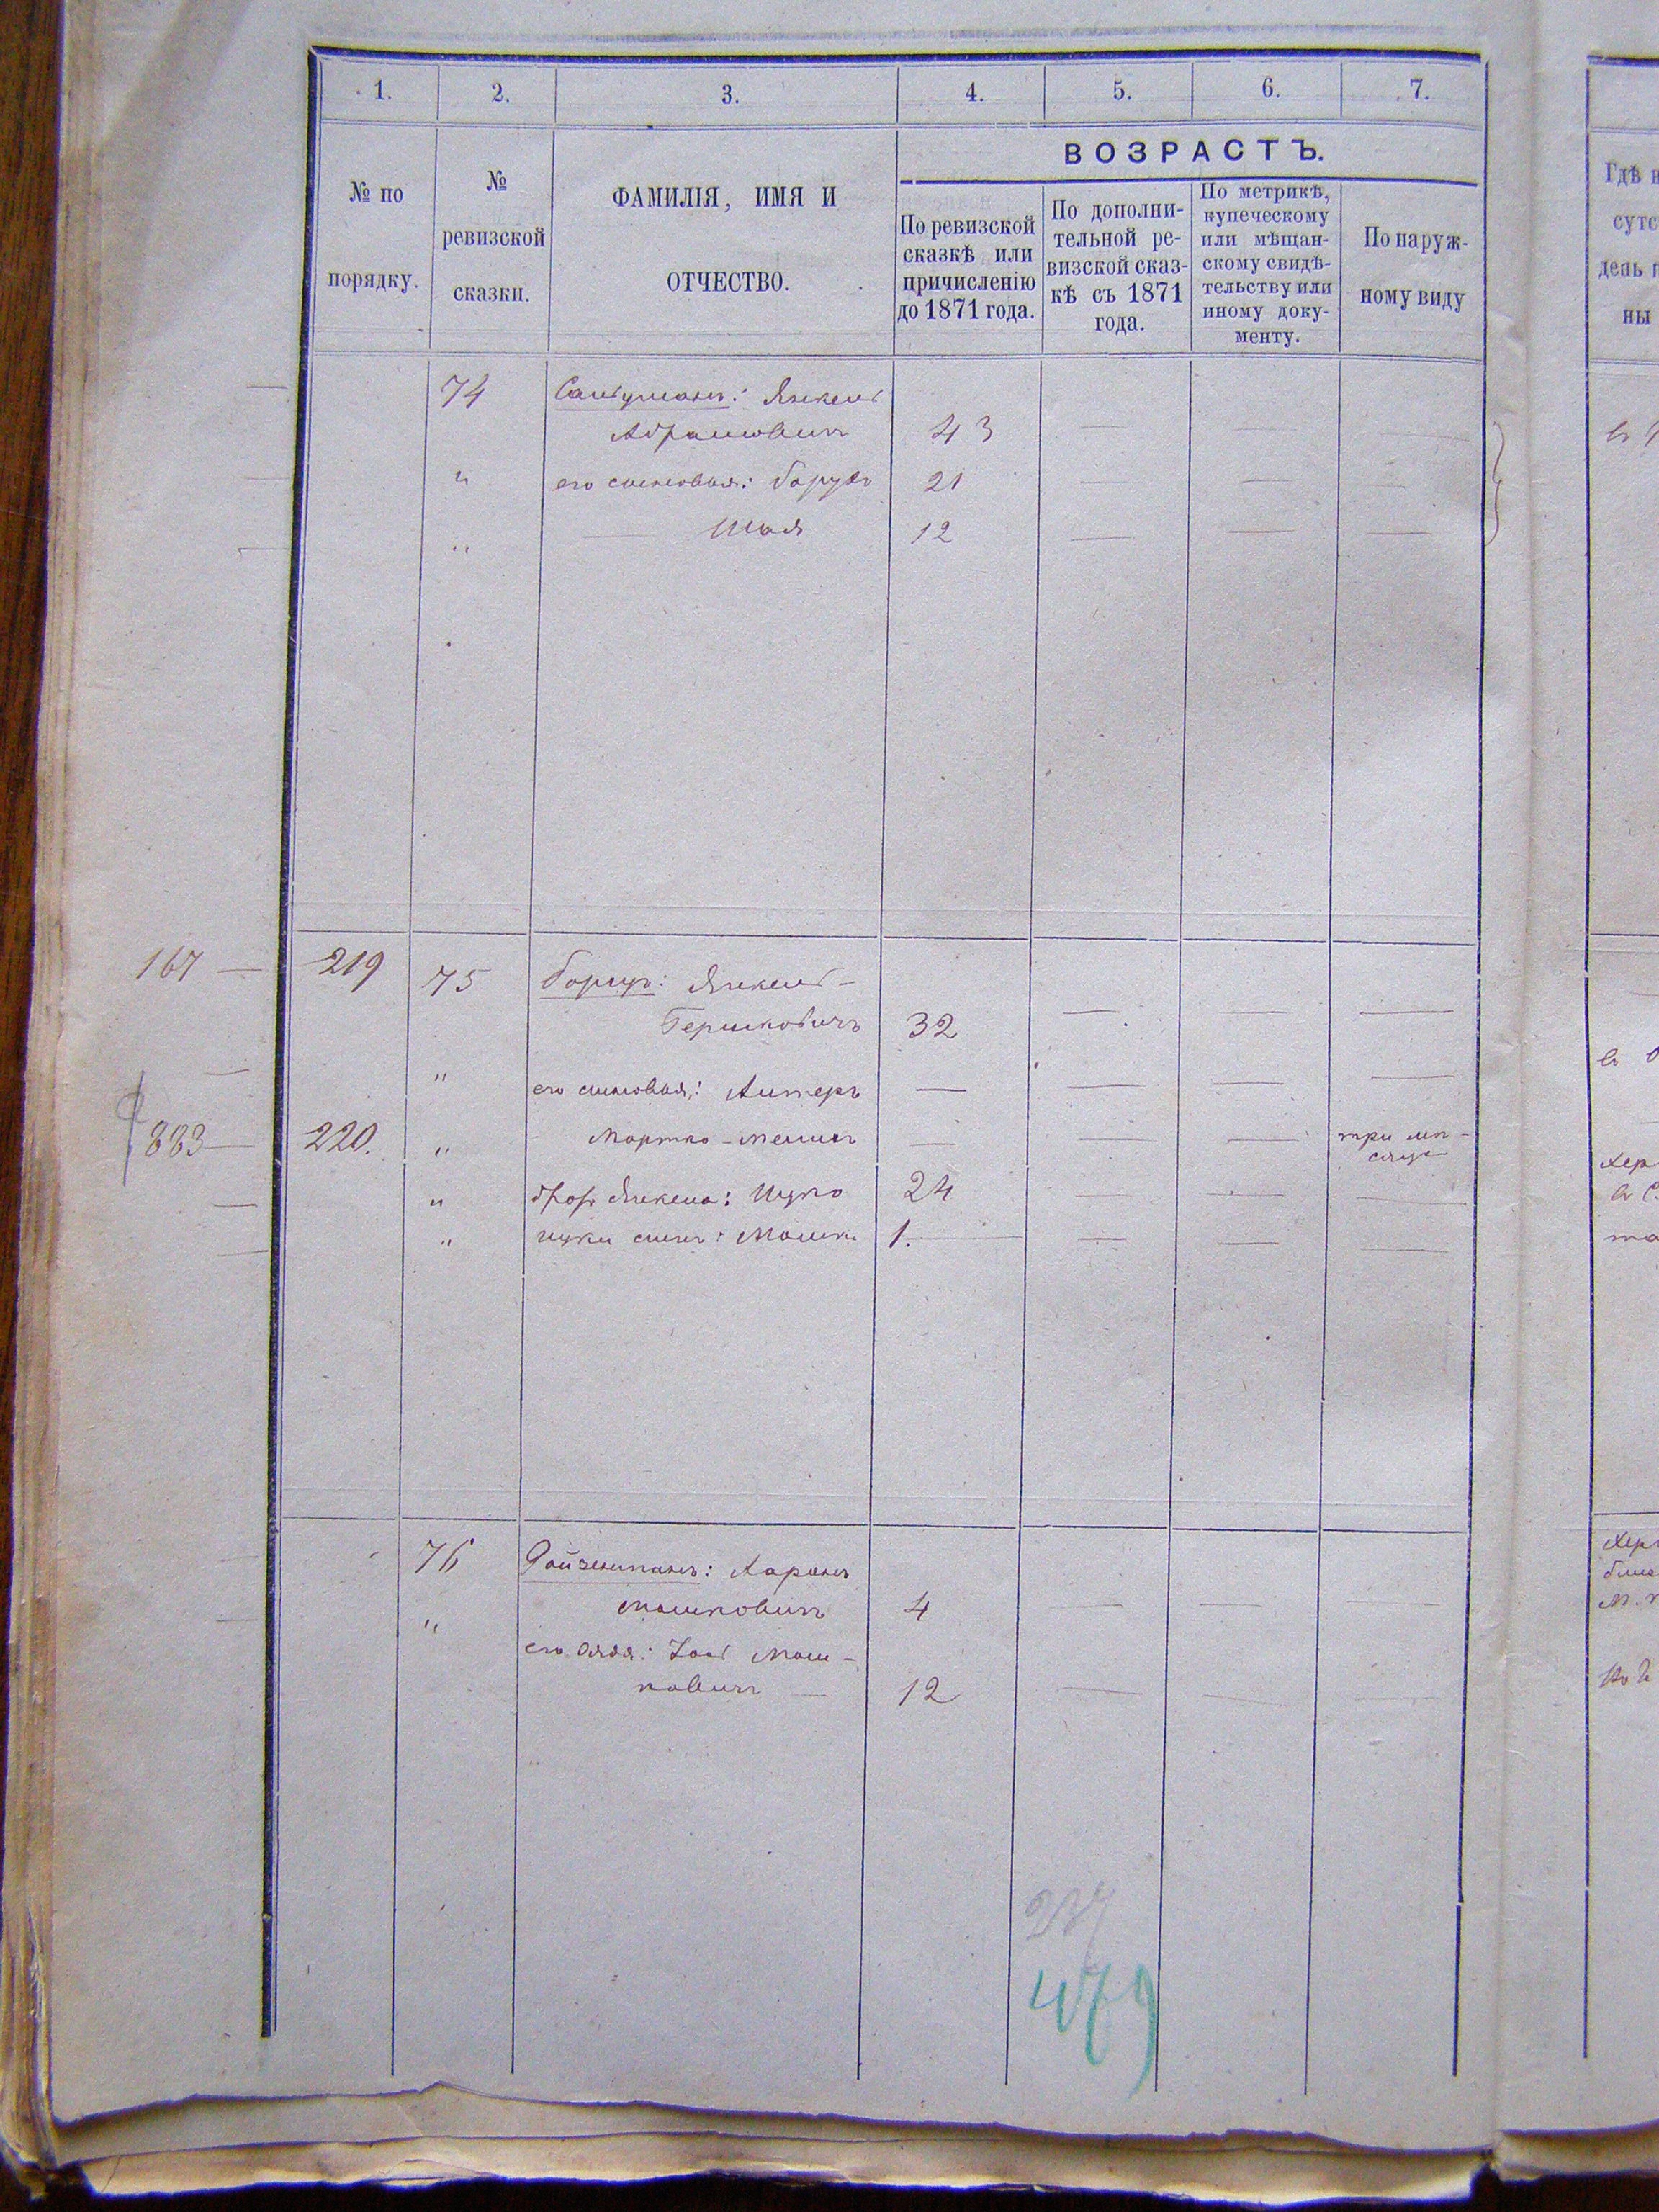 1. 2. 3. 4. 5. 6. 7.
№ по порядку.
№ ревизской сказки.
ФАМИЛІЯ, ИМЯ И ОТЧЕСТВО.
ВОЗРАСТЪ.
По ревизской сказкѣ или причисленію до 1871 года.
По дополнительной ревизской сказкѣ съ 1871 года.
По метрикѣ, купеческому или мѣщанскому свидѣтельству или иному документу.
По наружному виду
Гдѣ
74 Янкель
Абрамовичъ 43
" его сыновья: Борухъ 21
" — Шая 12
167 — 219 75 Янкель –
Гершковичъ 32
" его сыновья: Лизеръ —
883 — 220. " Мортко – —
три мѣ-
сяца
" братъ Янкеля: Ицко 24
" Ицки сынъ: Мошко 1.
76 Ройзенманъ: Ааронъ
Мошковичъ 4
" его дядя: Мош-
ковичъ — 12
237
479